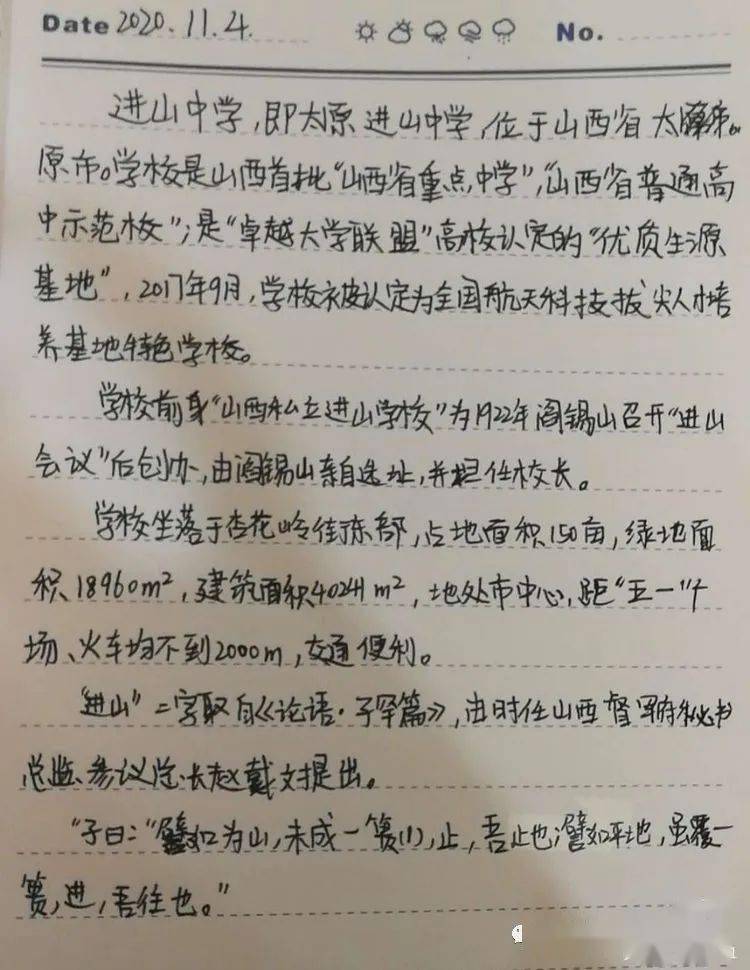 Date 2020.11.4. No.
进山中学,即太原进山中学,位于山西省太
原市。学校是山西首批“山西省重点中学”,“山西省普通高
中示范校”;是“卓越大学联盟”高校认定的“优质生源
基地”,2017年9月,学校被认定为全国航天科技拔尖人才培
养基地特色学校。
学校前身“山西私立进山学校”为1922年阎锡山召开“进山
会议”后创办,由阎锡山亲自选址,并担任校长。
学校坐落于杏花岭街东部,占地面积150亩,绿地面
积18960m²,建筑面积40241m²,地处市中心,距“五一”广
场、火车均不到2000m,交通便利。
“进山”二字取自《论语·子罕篇》,由时任山西督军府秘书
总监、参议总长赵戴文提出。
“子曰:“譬如为山,未成一篑(1),止,吾止也;譬如平地,虽覆一
篑,进,吾往也。”
1